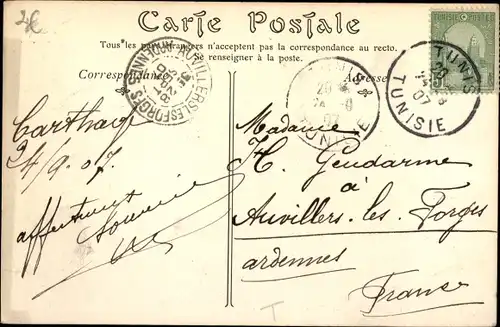 2€
Carte Postale
Tous les pays étrangers n'acceptent pas la correspondance au recto.
Se renseigner à la poste.
Correspondance
Adresse
AUVILLERS-LES-FORGES
ARDENNES
TUNIS
TUNISIE
TUNIS
20
07
TUNISIE
Carthage
24/9.07.
affectueux
Souvenir
Madame
H. Gendarme
à
Auvillers-les-Forges
ardennes
France
T